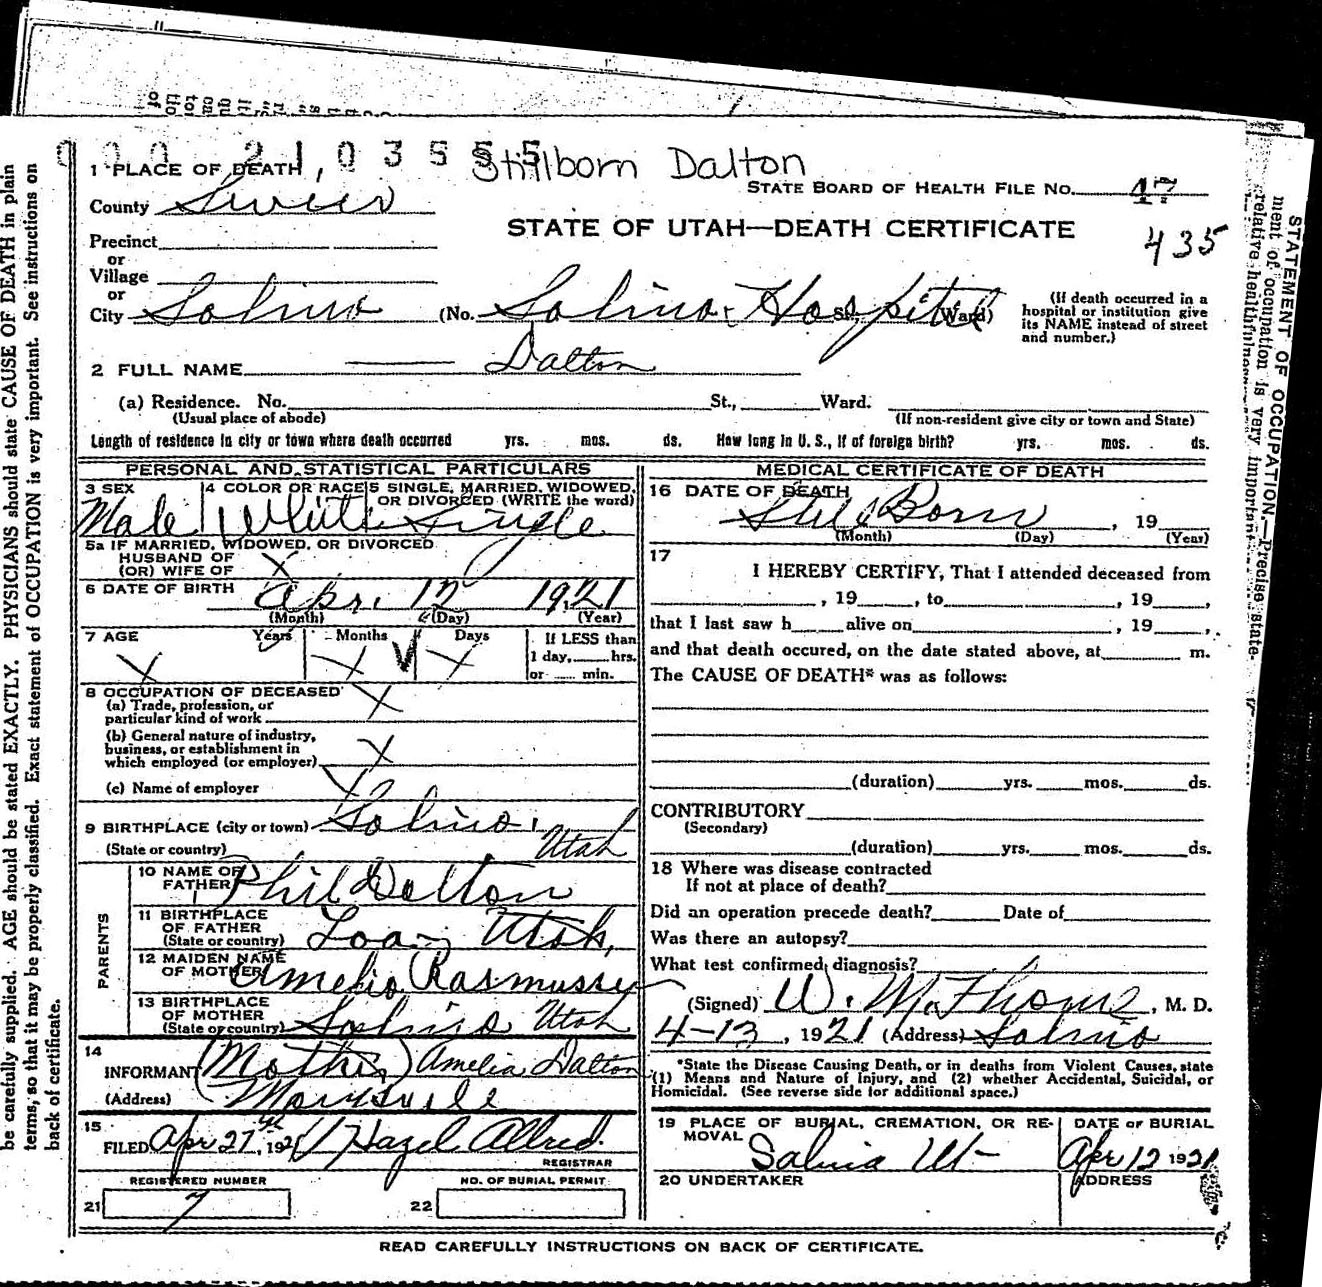 000 2103555 Stillborn Dalton
STATE BOARD OF HEALTH FILE No. 47
435
STATE OF UTAH—DEATH CERTIFICATE
1 PLACE OF DEATH,
County Sevier
Precinct
or
Village
or
City Salina (No. Salina Hospital St., Ward)
(If death occurred in a
hospital or institution give
its NAME instead of street
and number.)
2 FULL NAME Dalton
(a) Residence. No. St., Ward.
(Usual place of abode) (If non-resident give city or town and State)
Length of residence in city or town where death occurred yrs. mos. ds. How long in U. S., if of foreign birth? yrs. mos. ds.
PERSONAL AND STATISTICAL PARTICULARS
3 SEX 4 COLOR OR RACE 5 SINGLE, MARRIED, WIDOWED,
OR DIVORCED (WRITE the word)
Male White Single
5a IF MARRIED, WIDOWED, OR DIVORCED
HUSBAND OF
(OR) WIFE OF X
6 DATE OF BIRTH Apr. 12 1921
(Month) (Day) (Year)
7 AGE Years Months Days If LESS than
1 day, hrs.
or min.
X X X
8 OCCUPATION OF DECEASED
(a) Trade, profession, or
particular kind of work X
(b) General nature of industry,
business, or establishment in
which employed (or employer) X
(c) Name of employer X
9 BIRTHPLACE (city or town) Salina,
(State or country) Utah
PARENTS
10 NAME OF
FATHER Phil Dalton
11 BIRTHPLACE
OF FATHER
(State or country) Loa, Utah,
12 MAIDEN NAME
OF MOTHER Amelia Rasmussen
13 BIRTHPLACE
OF MOTHER
(State or country) Salina Utah
14
INFORMANT (Mother) Amelia Dalton
(Address) Marysvale
15
FILED Apr 27th, 1921 Hazel Allred.
REGISTRAR
REGISTERED NUMBER NO. OF BURIAL PERMIT
21 7 22
MEDICAL CERTIFICATE OF DEATH
16 DATE OF DEATH
Still Born, 19
(Month) (Day) (Year)
17
I HEREBY CERTIFY, That I attended deceased from
, 19 , to , 19 ,
that I last saw h alive on , 19 ,
and that death occured, on the date stated above, at m.
The CAUSE OF DEATH* was as follows:
(duration) yrs. mos. ds.
CONTRIBUTORY
(Secondary)
(duration) yrs. mos. ds.
18 Where was disease contracted
If not at place of death?
Did an operation precede death? Date of
Was there an autopsy?
What test confirmed diagnosis?
(Signed) W. M. , M. D.
4-13, 1921 (Address) Salina
*State the Disease Causing Death, or in deaths from Violent Causes, state
(1) Means and Nature of Injury, and (2) whether Accidental, Suicidal, or
Homicidal. (See reverse side for additional space.)
19 PLACE OF BURIAL, CREMATION, OR RE-
MOVAL
Salina Ut
DATE OF BURIAL
Apr 12 1921
20 UNDERTAKER ADDRESS
READ CAREFULLY INSTRUCTIONS ON BACK OF CERTIFICATE.
be carefully supplied. AGE should be stated EXACTLY. PHYSICIANS should state CAUSE OF DEATH in plain
terms, so that it may be properly classified. Exact statement of OCCUPATION is very important. See instructions on
back of certificate.
STATEMENT OF OCCUPATION.—Precise state-
ment of occupation is very important
relative healthfulness